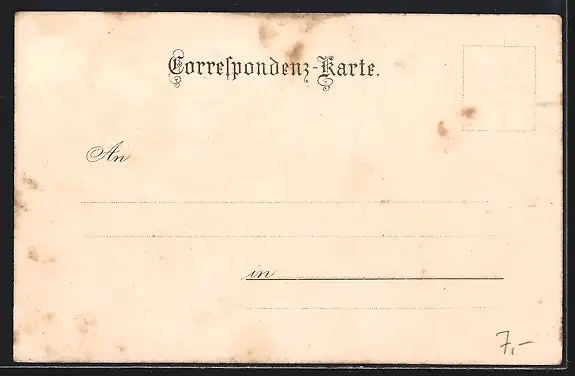 Correspondenz-Karte.
An
in
7,-